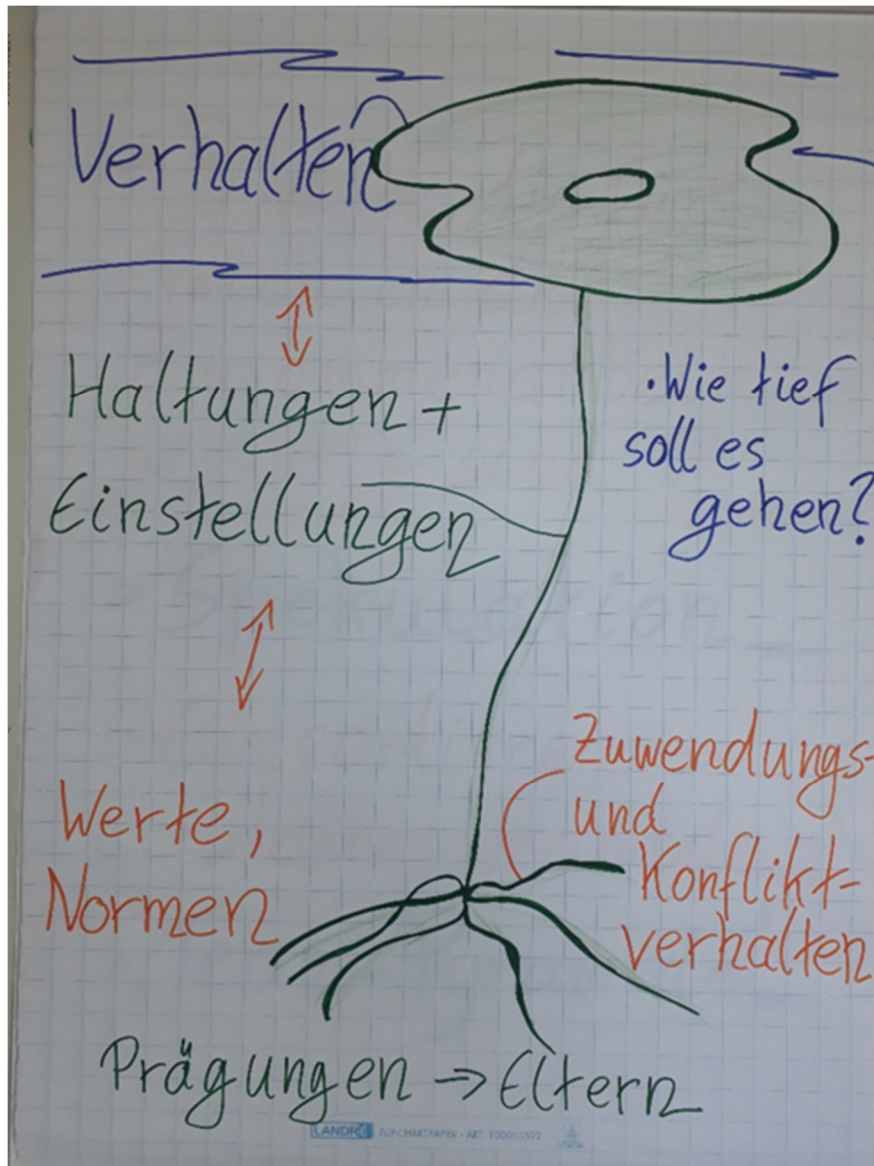 Verhalten
Haltungen +
Einstellungen
• Wie tief
soll es
gehen?
Werte,
Normen
Zuwendungs-
und
Konflikt-
verhalten
Prägungen → Eltern
LANDRÉ FLIPCHARTPAPIER - ART.